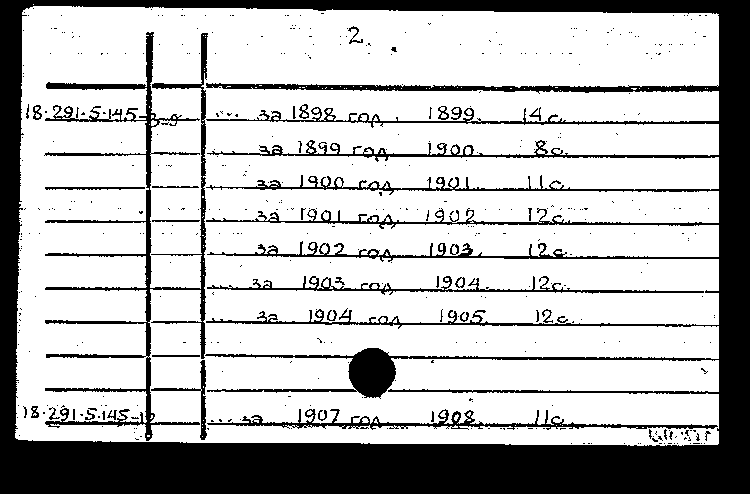 2.
18.291.5.145-3-9 ... за 1898 год. 1899. 14 с.
... за 1899 год 1900. 8 с.
... за 1900 год 1901. 11 с.
... за 1901 год 1902. 12 с.
... за 1902 год 1903. 12 с.
... за 1903 год 1904. 12 с.
... за 1904 год 1905. 12 с.
18.291.5.145-12 ... за 1907 год 1908. 11 с.